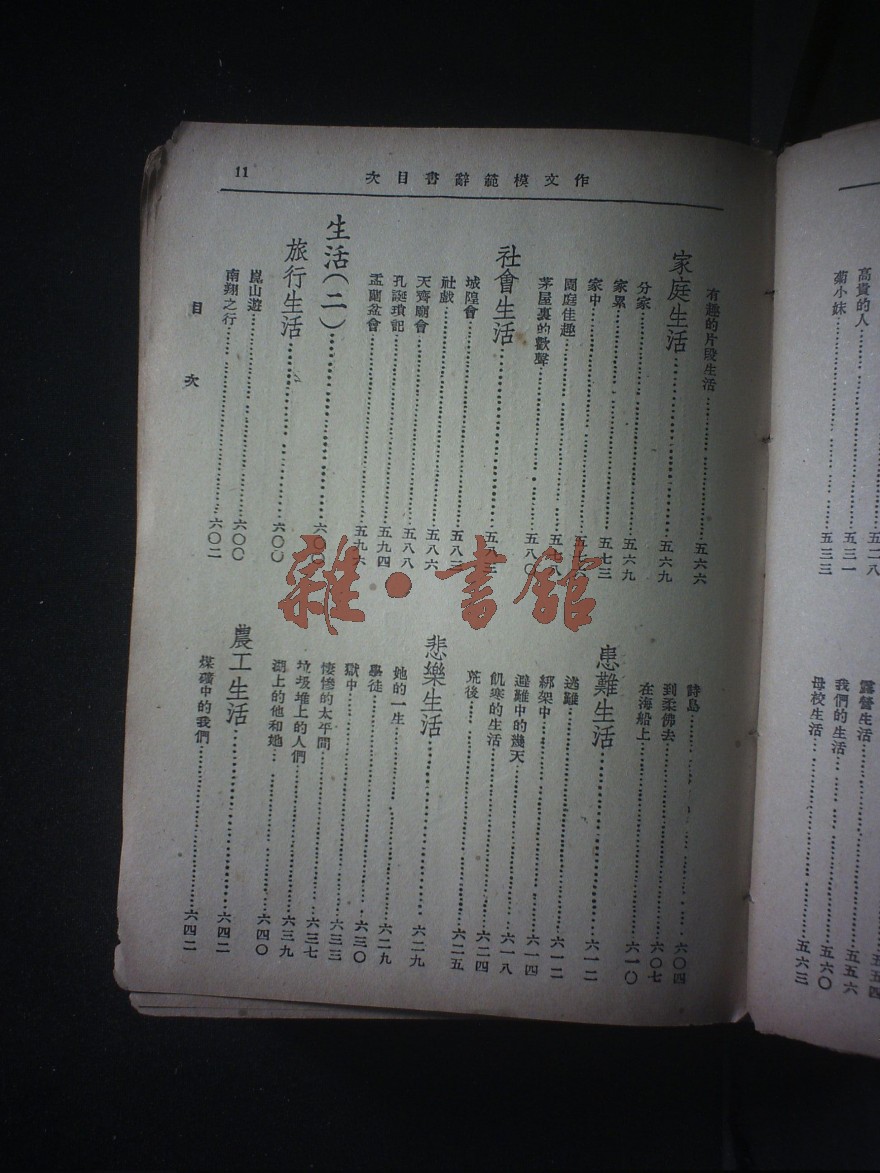 高貴的人……五二八
菊小妹……五三一
五三三
露營生活……五五四
我們的生活……五五六
母校生活……五六〇
五六三
作文模範辭書目次
11
有趣的片段生活……五六六
家庭生活……五六九
分家……五六九
家累……五七三
家中……
園庭佳趣……
茅屋裏的歡聲……五八〇
社會生活……五八三
城隍會……五八三
社戲……五八六
天齊廟會……五八八
孔誕瑣記……五九四
盂蘭盆會……五九六
生活(二)……六〇〇
旅行生活……六〇〇
崑山遊……六〇〇
南翔之行……六〇二
詩島……六〇四
到柔佛去……六〇七
在海船上……六一〇
患難生活……六一二
逃難……六一二
綁架中……六一四
避難中的幾天……六一八
飢寒的生活……六二四
荒後……六二五
悲樂生活……六二九
她的一生……六二九
學徒……六三〇
獄中……六三三
悽慘的太平間……六三七
垃圾堆上的人們……六三九
湖上的他和她……六四〇
農工生活……六四二
煤礦中的我們……六四二
目次
雜·書館